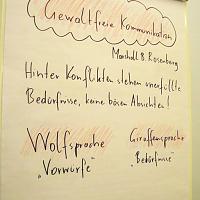 Gewaltfreie Kommunikation
Marshall B. Rosenberg
Hinter Konflikten stehen unerfüllte
Bedürfnisse, keine bösen Absichten!
Wolfssprache
"Vorwürfe"
Giraffensprache
"Bedürfnisse"